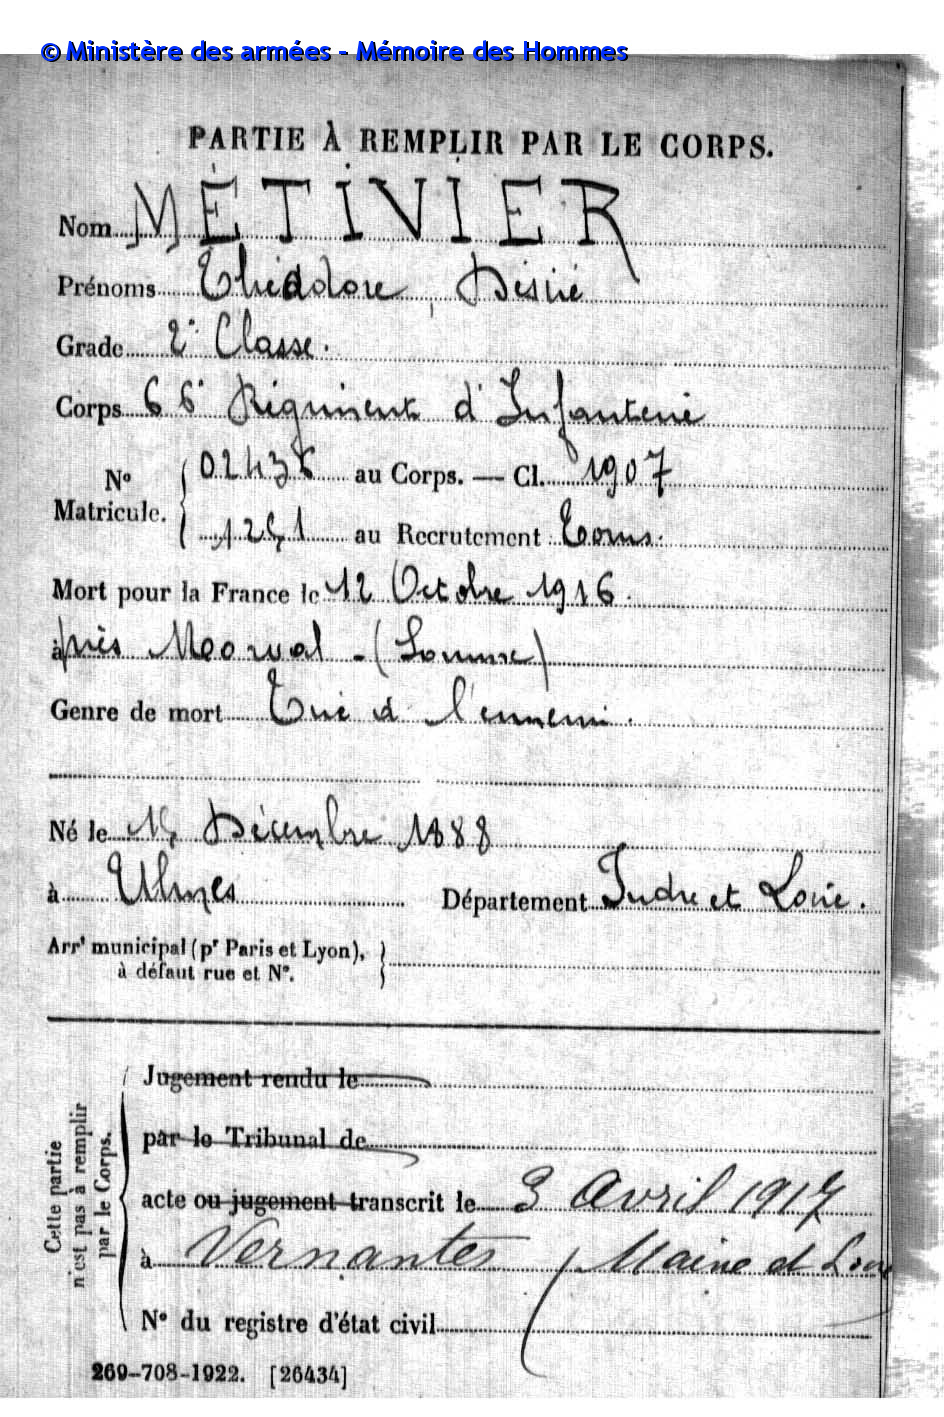 © Ministère des armées - Mémoire des Hommes
PARTIE À REMPLIR PAR LE CORPS.
Nom MÉTIVIER
Prénoms Théodore, Désiré
Grade 2e Classe.
Corps 66e Régiment d'Infanterie
No Matricule. au Corps. — Cl. 1907
au Recrutement Tours.
Mort pour la France le 12 Octobre 1916.
à près Morval - (Somme)
Genre de mort Tué à l'ennemi.
Né le Décembre 1888
à Ulmes Département Indre et Loire.
Arrt municipal (pr Paris et Lyon),
à défaut rue et No.
Cette partie n'est pas à remplir par le Corps.
Jugement rendu le
par le Tribunal de
acte ou jugement transcrit le 3 Avril 1917
à Vernantes (Maine et Loire
No du registre d'état civil
269-708-1922. [26434]